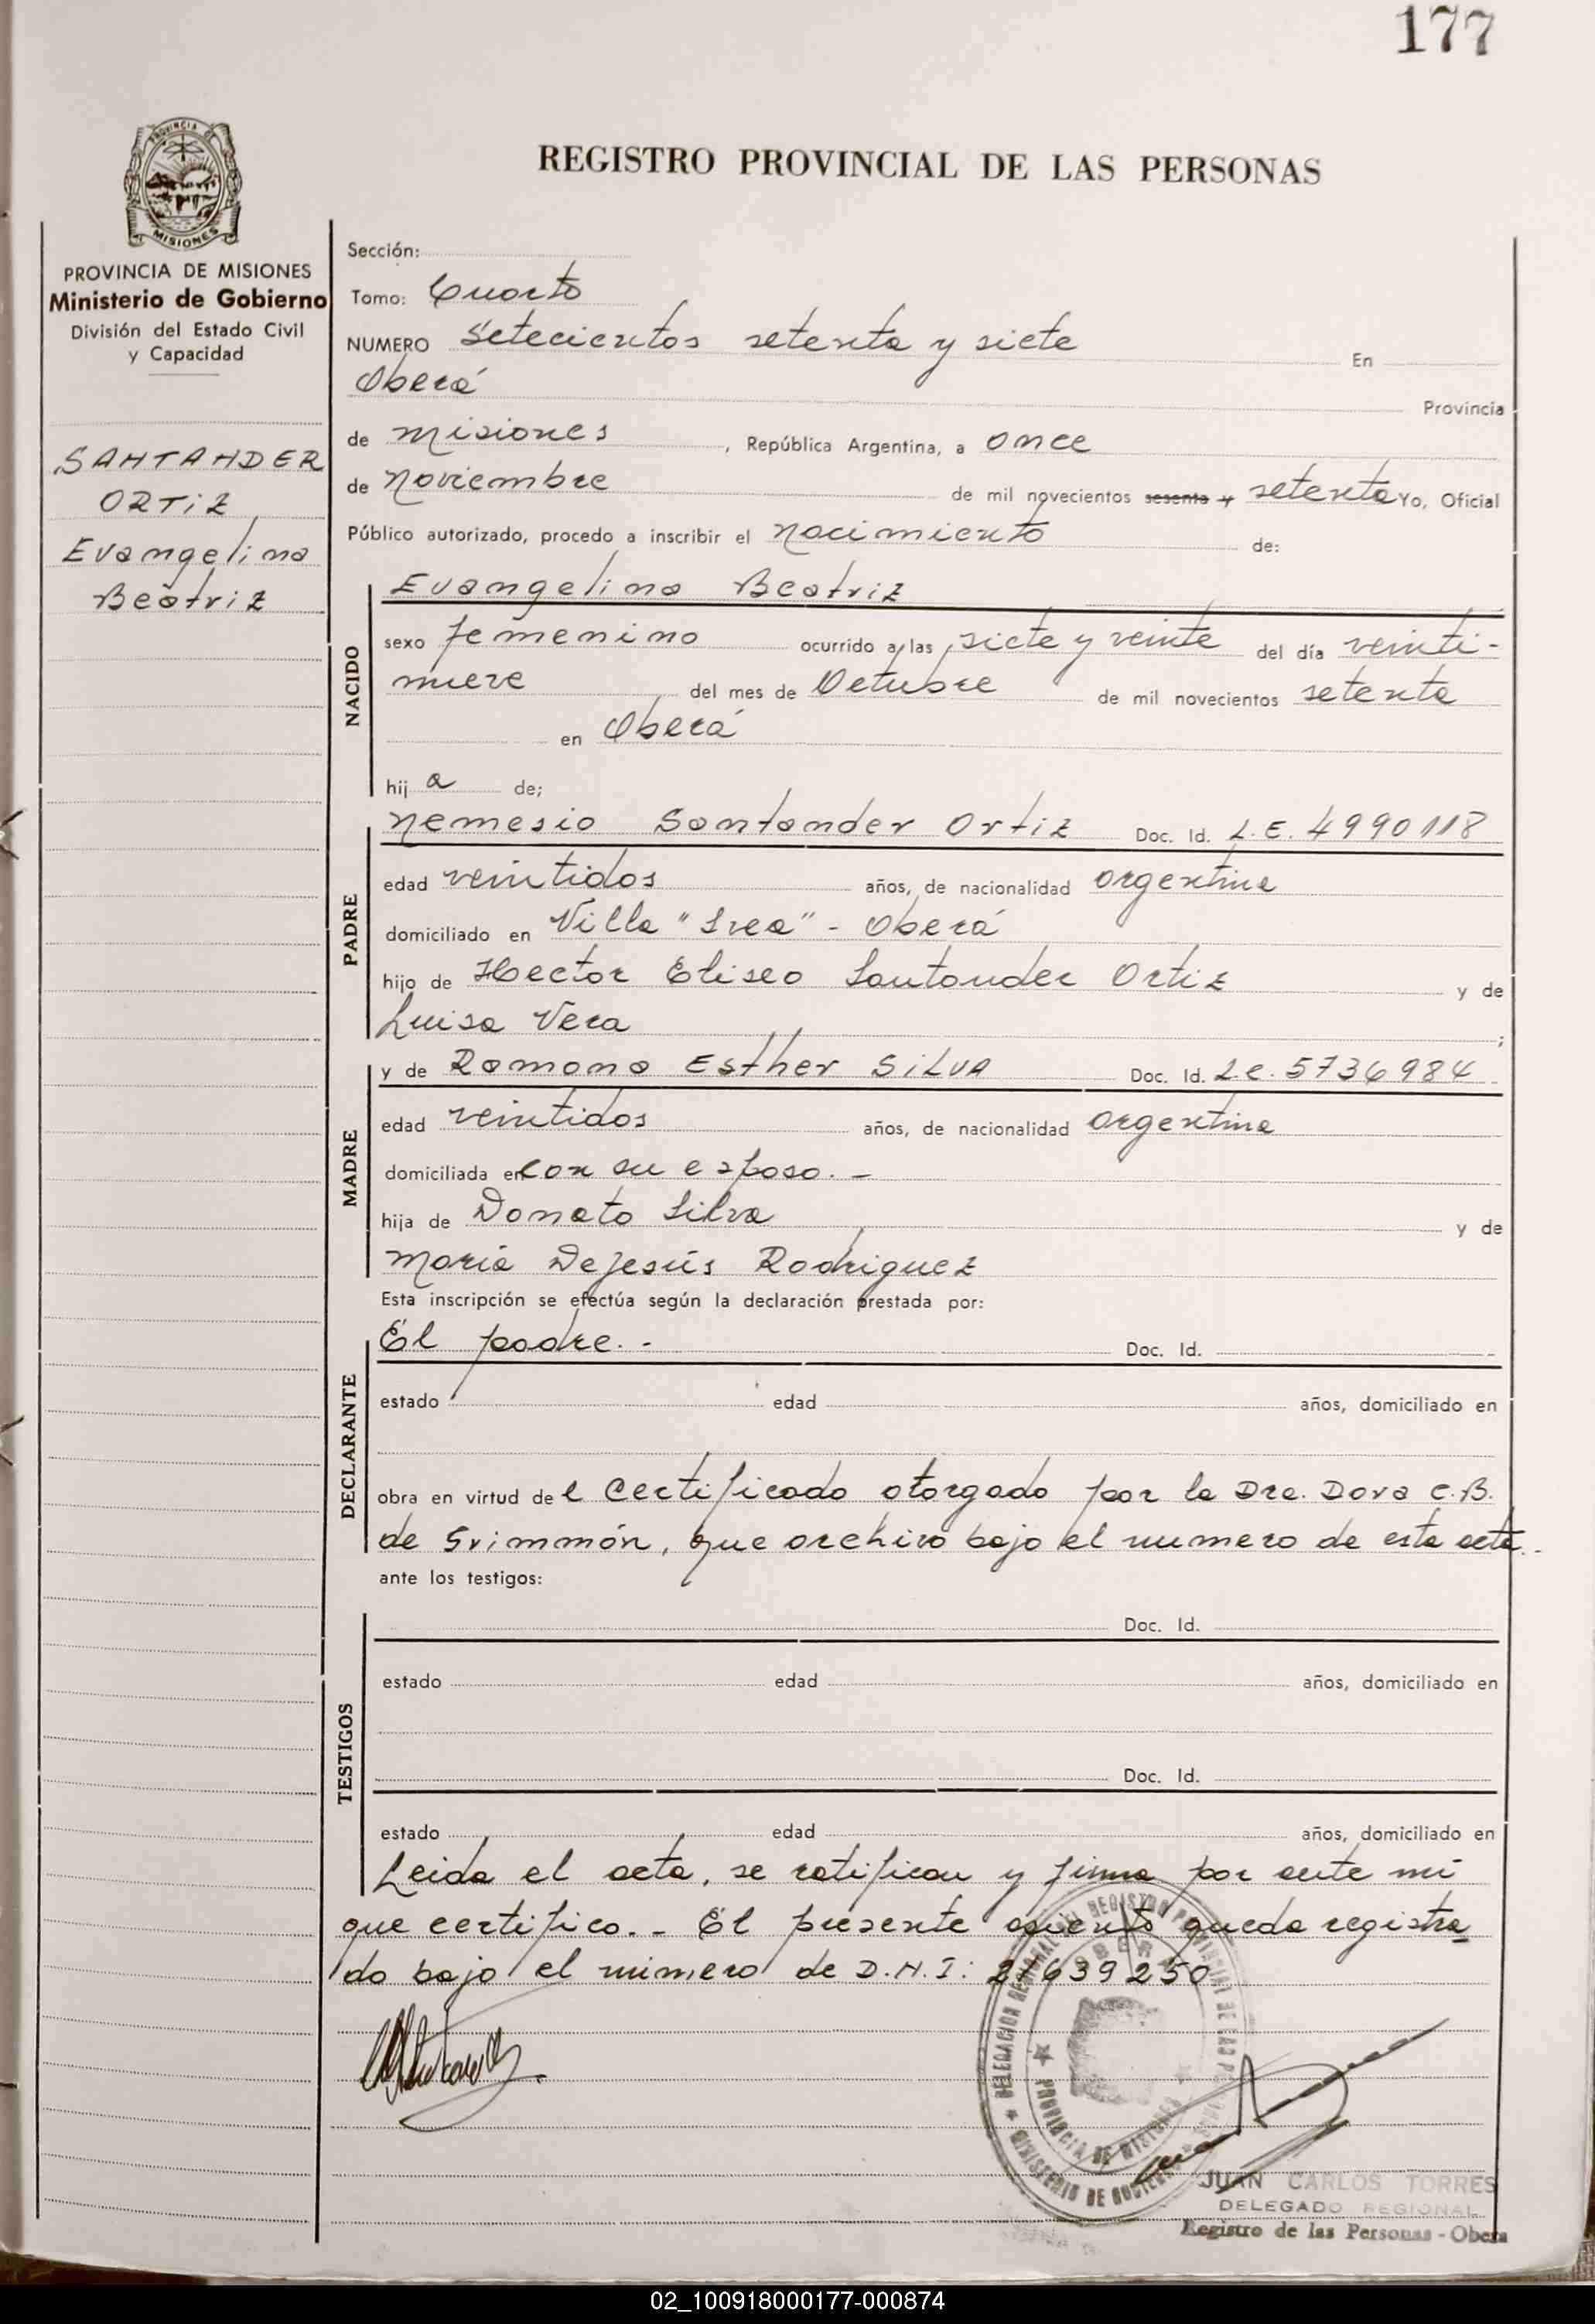 177
REGISTRO PROVINCIAL DE LAS PERSONAS
PROVINCIA DE
MISIONES
PROVINCIA DE MISIONES
Ministerio de Gobierno
División del Estado Civil
y Capacidad
SANTANDER
ORTIZ
Evangelina
Beatriz
Sección:
Tomo: Cuarto
NUMERO Setecientos setenta y siete En
Oberá Provincia
de Misiones, República Argentina, a once
de Noviembre de mil novecientos sesenta y setenta Yo, Oficial
Público autorizado, procedo a inscribir el nacimiento de:
NACIDO
Evangelina Beatriz
sexo femenino ocurrido a las siete y veinte del día veinti-
nueve del mes de Octubre de mil novecientos setenta
en Oberá
hij a de;
PADRE
Nemesio Santander Ortiz Doc. Id. L.E. 4990118
edad veintidos años, de nacionalidad argentina
domiciliado en Villa - Oberá
hijo de Hector Eliseo Santander Ortiz y de
Luisa Vera ;
MADRE
y de Ramona Esther SILVA Doc. Id. L.C. 5736984
edad veintidos años, de nacionalidad argentina
domiciliada en con su esposo. -
hija de Donato Silva y de
María DeJesús Rodriguez
Esta inscripción se efectúa según la declaración prestada por:
DECLARANTE
El padre. - Doc. Id.
estado edad años, domiciliado en
obra en virtud de l Certificado otorgado por la Dra. Dora C.B.
de Grimmón, que archivo bajo el numero de esta acta.
ante los testigos:
TESTIGOS
Doc. Id.
estado edad años, domiciliado en
Doc. Id.
estado edad años, domiciliado en
Leida el acta, se ratifican y firma por ante mi
que certifico. - El presente asiento queda registra
do bajo el número de D.N.I: 21639250
DELEGACION REGIONAL DEL REGISTRO PROVINCIAL DE LAS PERSONAS
PROVINCIA DE MISIONES
MINISTERIO DE GOBIERNO
JUAN CARLOS TORRES
DELEGADO REGIONAL
Registro de las Personas - Obera
02_100918000177-000874